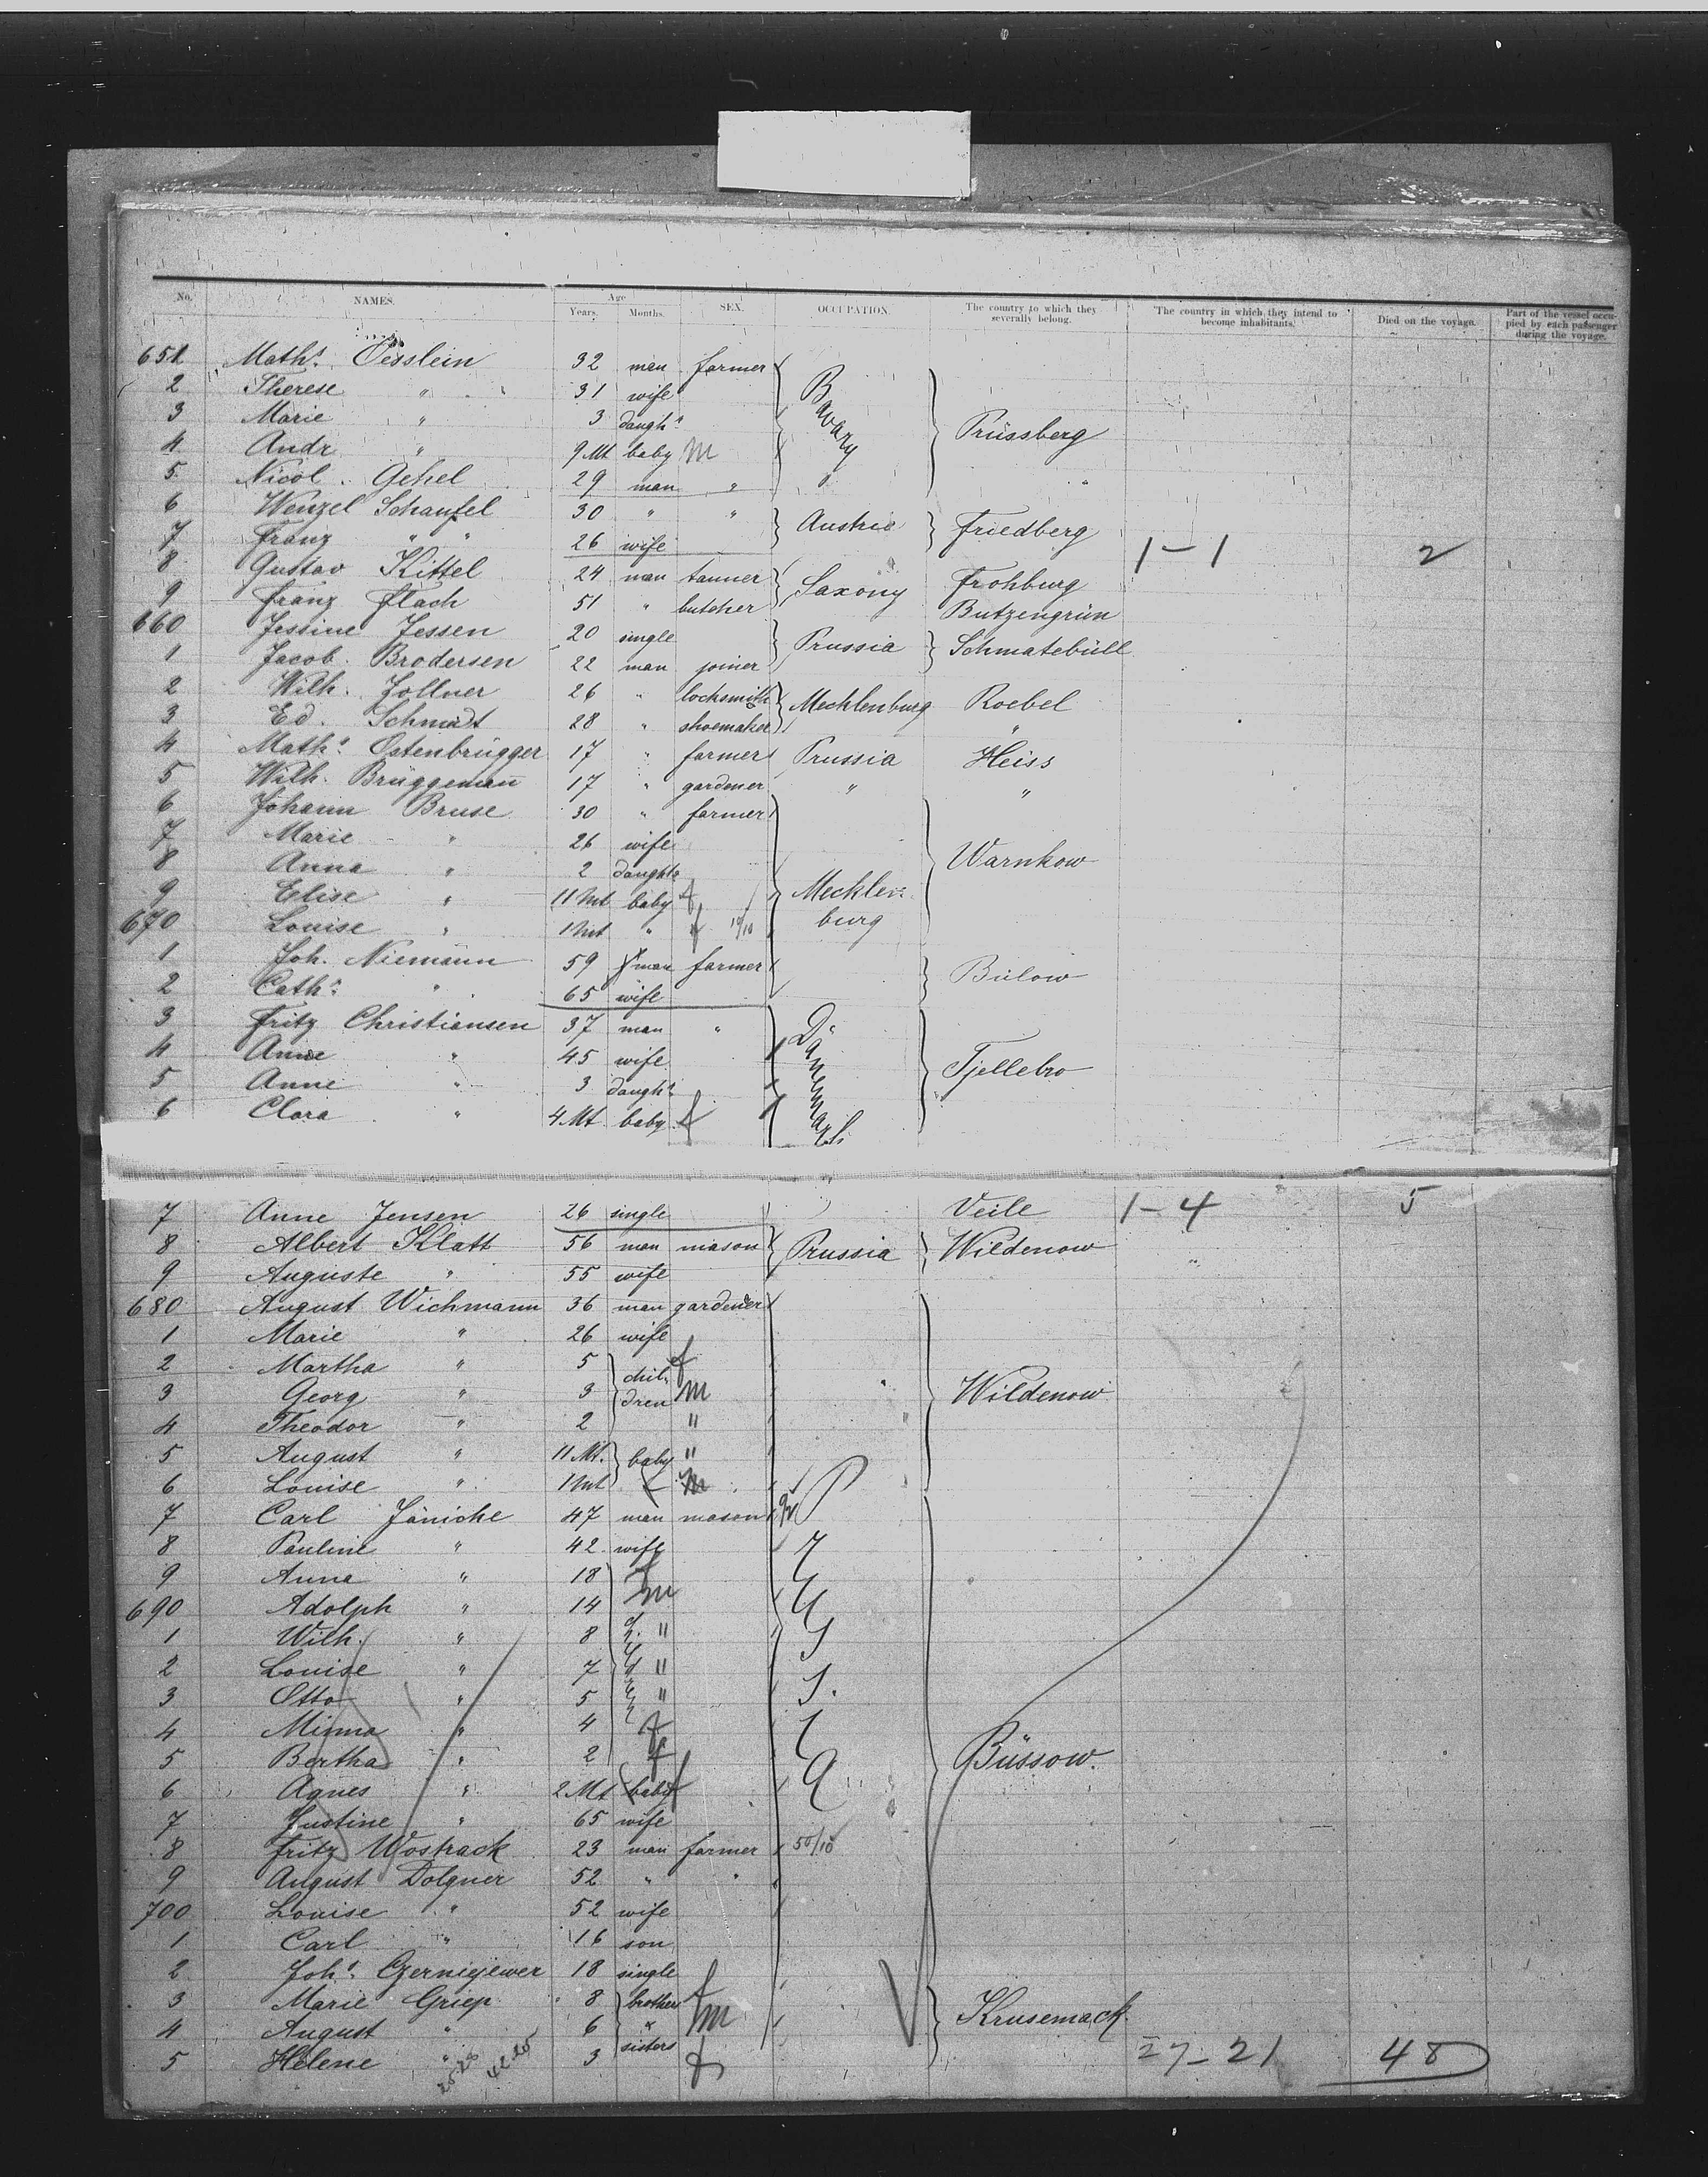 No. NAMES. Age Years. Months. SEX. OCCUPATION. The country to which they severally belong. The country in which they intend to become inhabitants. Died on the voyage. Part of the vessel occupied by each passenger during the voyage.
651 Math.s Oesslein 32 man farmer Bavary Prüssberg
2 Therese " 31 wife
3 Marie " 3 daugh.r
4 Andr. " 9 Mt baby M
5 Nicol. Gehel 29 man " "
6 Wenzel Schaufel 30 " " Austria Friedberg
7 Franz " " 26 wife 1-1 2
8 Gustav Kittel 24 man tanner Saxony Frohburg
9 Franz Flach 51 " butcher Butzengrün
660 Jessine Jessen 20 single Prussia Schmatebüll
1 Jacob Brodersen 22 man joiner
2 Wilh. Zollner 26 " locksmith Mecklenburg Roebel
3 Ed. Schmidt 28 " shoemaker "
4 Math.s Ostenbrügger 17 " farmer Prussia Heiss
5 Wilh. Brüggeman̄ 17 " gardener " "
6 Johann Bruse 30 " farmer Mecklenburg Warnkow
7 Marie " 26 wife
8 Anna " 2 daught.r
9 Elise " 11 Mt baby f
670 Louise " 1 Mt " f
1 Joh. Niemann 59 man farmer Bülow
2 Cath.a " 65 wife
3 Fritz Christiansen 37 man " Danemark Tjellebro
4 Anne " 45 wife
5 Anne " 3 daugh.r
6 Clara " 4 Mt baby f
7 Anne Jensen 26 single Veile 1-4 5
8 Albert Klatt 56 man mason Prussia Wildenow
9 Auguste " 55 wife
680 August Wichmann 36 man gardener " Wildenow
1 Marie " 26 wife
2 Martha " 5 children f
3 Georg " 3 M
4 Theodor " 2 "
5 August " 11 Mt. baby "
6 Louise " 1 Mt
7 Carl Jänicke 47 man mason Prussia Büssow.
8 Pauline " 42 wife
9 Anna " 18 f
690 Adolph " 14 m
1 Wilh. " 8 "
2 Louise " 7 "
3 Otto " 5 "
4 Minna " 4 f
5 Bertha " 2 f
6 Agnes " 2 Mt baby f
7 Justine " 65 wife
8 Fritz Wostrack 23 man farmer 50/10
9 August Dolgner 52 " "
700 Louise " 52 wife
1 Carl " 16 son
2 Joh.a Czerniejewer 18 single
3 Marie Griep 8 brothers f Krusemack.
4 August " 6 & M
5 Helene " 3 sisters f 27-21 48